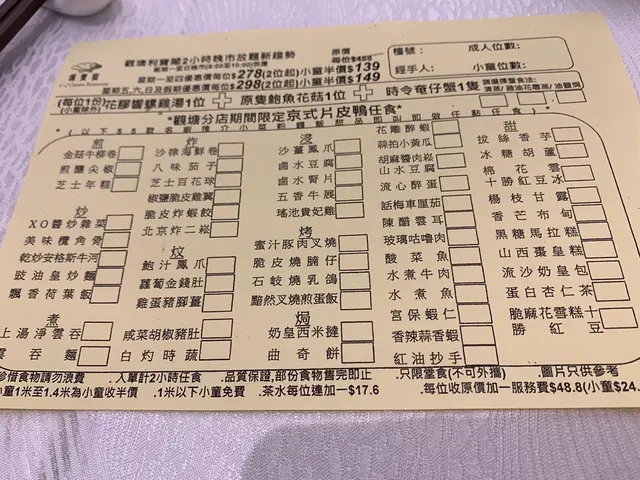 觀塘利寶閣2小時晚市放題新趨勢
星期一至日晚市(6:00至10:00)供應
原價
每位$488
星期一至四優惠價每位$278(2位起)小童半價$139
星期五,六,日及假期優惠價每位$298(2位起)小童半價$149
檯號: 成人位數:
經手人: 小童位數:
(每位1份)花膠響螺雞湯1位 + 原隻鮑魚花菇1位 + 時令奄仔蟹1隻
(小童除外)
請選擇整食法:
清蒸/雞油花雕蒸/油鹽焗
*觀塘分店期間限定京式片皮鴨任食*
煎
金菇牛柳卷
煎釀尖椒
芝士年糕
炒
XO醬炒雜菜
美味欖角骨
乾炒安格斯牛河
豉油皇炒麵
飄香荷葉飯
煮
上湯淨雲吞
雲吞麵
炸
沙律海鮮卷
八味茄子
芝士百花球
椒鹽脆皮雞翼
脆皮炸蝦餃
北京炸二崧
炆
鮑汁鳳爪
蘿蔔金錢肚
雞蛋豬腳薑
咸菜胡椒豬肚
白灼時蔬
浸
沙薑鳳爪
鹵水豆腐
鹵水腎片
五香牛展
瑤池貴妃雞
烤
蜜汁豚肉叉燒
脆皮燒腩仔
石岐燒乳鴿
黯然叉燒煎蛋飯
焗
奶皇西米撻
曲奇餅
花雕醉蝦
蒜拍小黃瓜
胡麻醬肉崧
山水豆腐
流心醉蛋
話梅車厘茄
陳醋雲耳
玻璃咕嚕肉
酸菜魚
水煮牛肉
水煮魚
宮保蝦仁
香辣蒜香蝦
紅油抄手
甜
拉絲香芋
冰糖葫蘆
棉花雲
十勝紅豆冰
楊枝甘露
香芒布甸
黑糖馬拉糕
山西棗皇糕
流沙奶皇包
蛋白杏仁茶
脆麻花雪糕
十勝紅豆
珍惜食物請勿浪費 .入單計2小時任食 .品質保證,部份食物售完即止 .只限堂食(不可外攜) .圖片只供參考
小童1米至1.4米為小童收半價 .1米以下小童免費 .茶水每位連加一$17.6 .每位收原價加一服務費$48.8(小童$24.